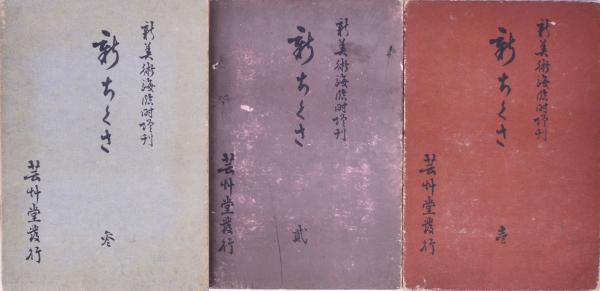 新美術海臨時増刊
新ちくさ
壱
芸艸堂發行
新美術海臨時増刊
新ちくさ
貳
芸艸堂發行
新美術海臨時増刊
新ちくさ
参
芸艸堂發行